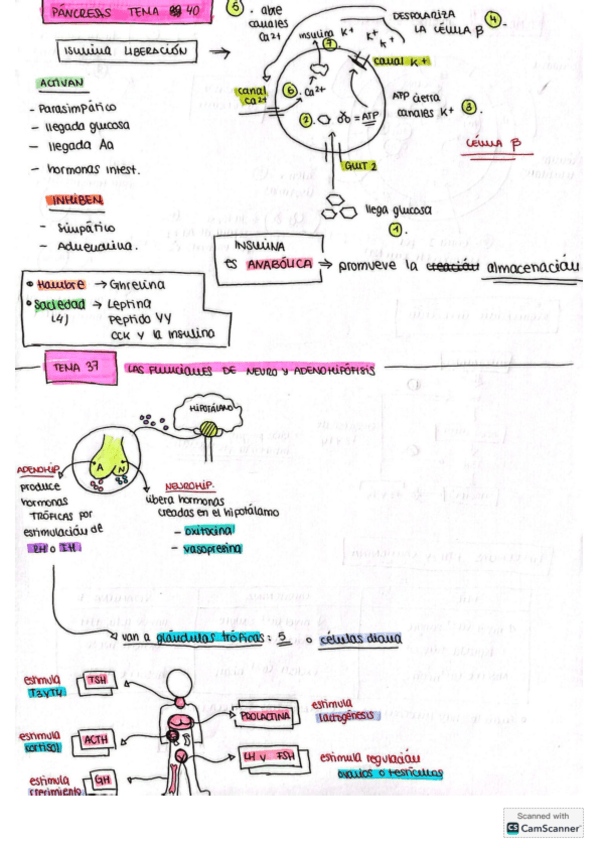 PÁNCREAS TEMA 40
INSULINA LIBERACIÓN →
ACTIVAN
- Parasimpático
- llegada glucosa
- llegada Aa
- hormonas intest.
INHIBEN
- Simpático
- Adrenalina.
5. abre
canales
Ca2+
insulina
7.
K+
K+
K+
K+
DESPOLARIZA 4.
LA CÉLULA β
canal K+
canal
Ca2+
6. Ca2+
2. = ATP
ATP cierra
canales K+ 3.
CÉLULA β
GLUT 2
llega glucosa
1.
INSULINA
es ANABÓLICA ⇒ promueve la creación almacenación
• Hambre → Ghrelina
• Saciedad → Leptina
(4) Peptido YY
CCK y la Insulina
TEMA 37 LAS FUNCIONES DE NEURO y ADENOHIPÓFISIS
HIPOTÁLAMO
A N
ADENOHIP.
produce
hormonas
TRÓFICAS por
estimulación de
RH o IH.
NEUROHIP.
libera hormonas
creadas en el hipotálamo
- oxitocina
- vasopresina
van a glándulas tróficas: 5 o células diana
estimula
T3yT4
TSH
estimula
cortisol
ACTH
estimula
crecimiento
GH
PROLACTINA
estimula
lactogénesis
LH y FSH
estimula regulación
ovarios o testículos
Scanned with
CS CamScanner